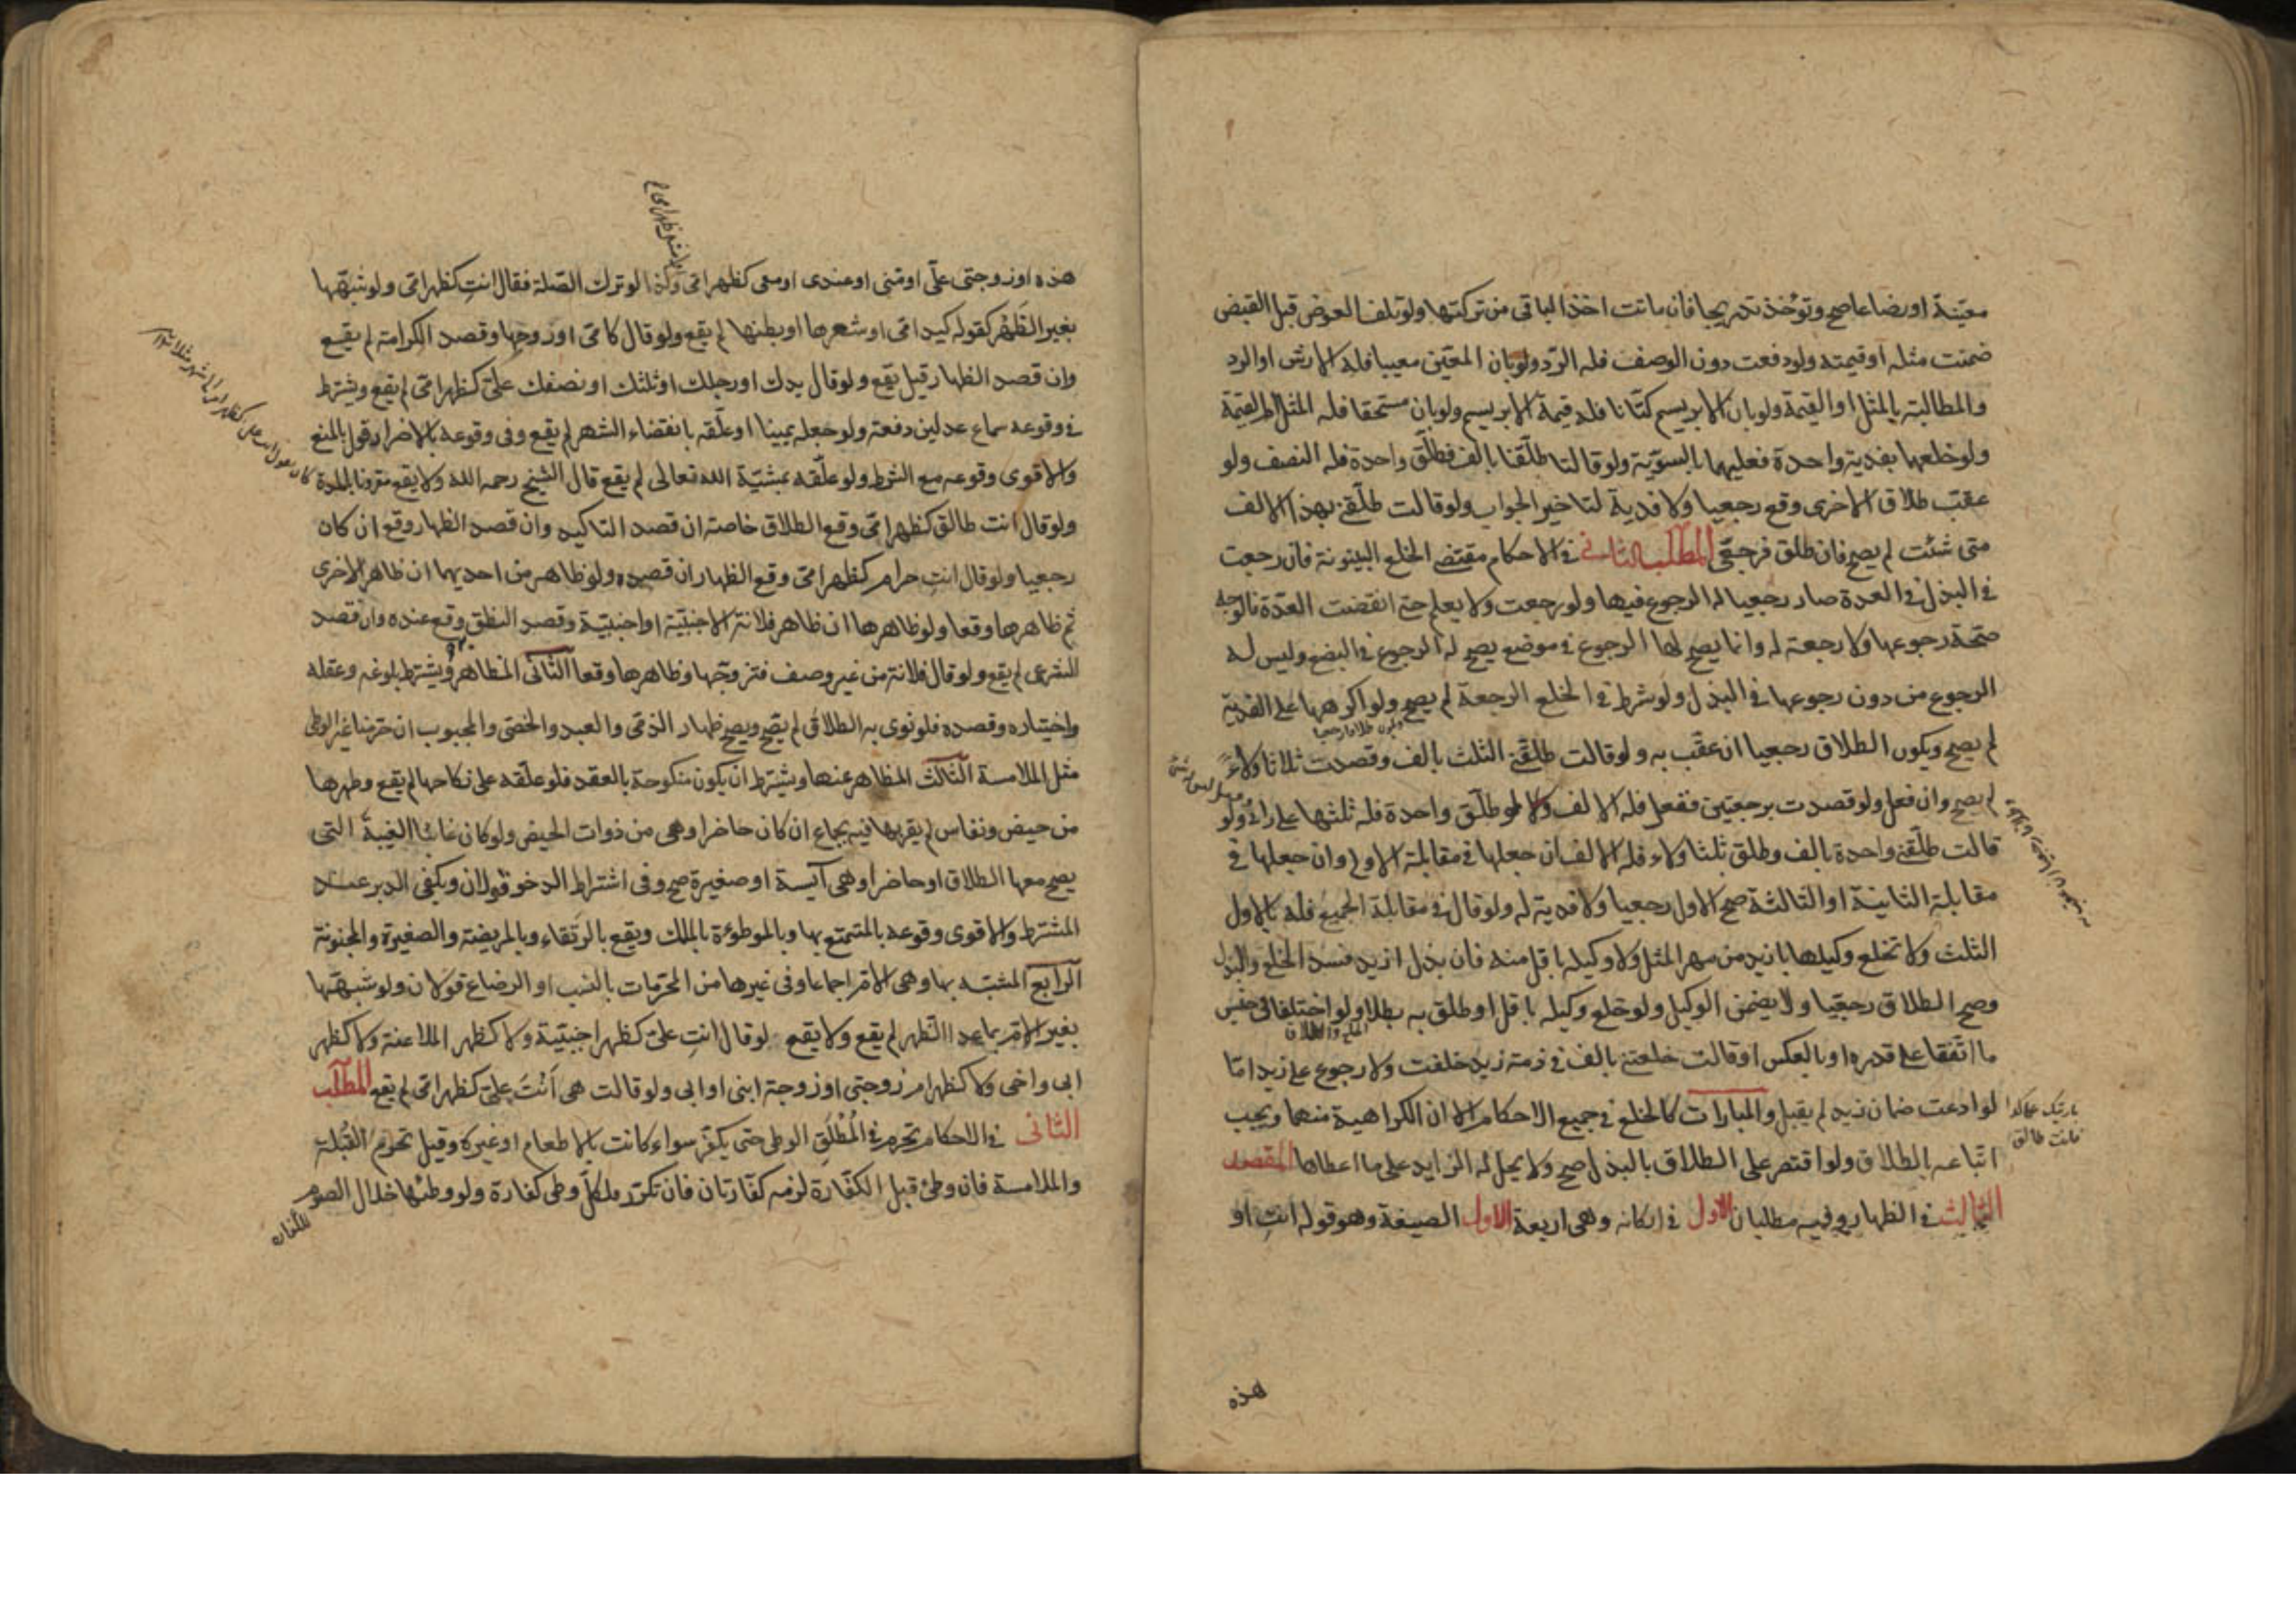 معيّنة او رضاعا صح وتؤخذ تدريجا فان ماتت اخذ الباقى من تركتها ولو تلف العوض قبل القبض
ضمنت مثله او قيمته ولو دفعت دون الوصف فله الردّ ولو بان المعيّن معيبا فله الارش او الرد
والمطالبة بالمثل او القيمة ولو بان الابريسم كتّانا فله قيمة الابريسم ولو بان مستحقا فله المثل او القيمة
ولو خلعهما بفدية واحدة فعليهما بالسويّة ولو قالتا طلّقنا بالف فطلّق واحدة فله النصف ولو
عقب طلاق الاخرى وقع رجعيا ولا فدية لتاخير الجواب ولو قالت طلّقنى بهذا الالف
متى شئت لم يصح فان طلق فرجعى المطلب الثانى فى الاحكام مقتضى الخلع البينونة فان رجعت
فى البذل فى العدة صار رجعيا له الرجوع فيها ولو رجعت ولا يعلم حتى انقضت العدّة فالوجه
صحّة رجوعها ولا رجعة له وانما يصح لها الرجوع فى موضع يصح له الرجوع فى البضع وليس له
الرجوع من دون رجوعها فى البذل ولو شرط فى الخلع الرجعة لم يصح ولو اكرهها على الفدية
لم يصح ويكون الطلاق رجعيا ان عقّب به ولو قالت طلقنى الثلث بالف وقصدت ثلاثا ولاءً
لم يصح وان فعل ولو قصدت برجعتين ففعل فله الالف ولو طلّق واحدة فله ثلثها على راى ولو
قالت طلّقنى واحدة بالف وطلق ثلثا ولاء فله الالف ان جعلها فى مقابلة الاولى وان جعلها فى
مقابلة الثانية او الثالثة صح الاول رجعيا ولا فدية له ولو قال فى مقابلة الجميع فله بالاول
الثلث ولا تخلع وكيلها بازيد من مهر المثل ولا وكيله باقل منه فان بذل ازيد فسد الخلع والبذل
وصح الطلاق رجعيا ولا يضمن الوكيل ولو خلع وكيله باقل او طلق به بطلا ولو اختلفا فى جنس
ما اتّفقا على قدره او بالعكس او قالت خلعتنى بالف فى ذمة زيد حلفت ولا رجوع على زيد امّا
لو ادعت ضمان زيد لم يقبل والمبارات كالخلع فى جميع الاحكام الا ان الكراهية منهما ويجب
اتباعه بالطلاق ولو اقتصر على الطلاق بالبذل صح ولا يحل له الزايد على ما اعطاها المقصد
الثالث فى الظهار وفيه مطلبان الاول فى اركانه وهى اربعة الاول الصيغة وهو قوله انتِ او
فانت طالق
هذه
هذه او زوجتى علّى او منّى او عندى او معى كظهر امى وكذا لو ترك الصّلة فقال انتِ كظهر امّى ولو شبّهها
بغير الظَهْر كقوله كيد امّى او شعرها او بطنها لم يقع ولو قال كامّى او روحها وقصد الكرامة لم يقع
وان قصد الظهار قيل يقع ولو قال يدك او رجلك او ثلثك او نصفك علىّ كظهر امّى لم يقع ويشترط
فى وقوعه سماع عدلين دفعة ولو جعله يمينا او علّقه بانقضاء الشهر لم يقع وفى وقوعه بالاضرار قول بالمنع
والاقوى وقوعه مع الشرط ولو علّقه بمشيّة الله تعالى لم يقع قال الشيخ رحمه الله ولا يقع مقرونا بالمدة
ولو قال انت طالق كظهر امّى وقع الطلاق خاصة ان قصد التاكيد وان قصد الظهار وقع ان كان
رجعيا ولو قال انتِ حرام كظهر امّى وقع الظهار ان قصده ولو ظاهر من احديهما ان ظاهر الاخرى
ثم ظاهرها وقعا ولو ظاهرها ان ظاهر فلانة الاجنبيّة او اجنبيّة وقصد النطق وقع عنده وان قصد
الشرعى لم يقع ولو قال فلانة من غير وصف فتزوجّها وظاهرها وقعا الثانى المظاهر ويشترط بلوغه وعقله
واختياره وقصده فلو نوى به الطلاق لم يقع ويصح ظهار الذمّى والعبد والخصى والمجبوب ان حرّمنا غير الوطى
مثل الملامسة الثالث المظاهر عنها ويشترط ان يكون منكوحة بالعقد فلو علّقه على نكاحها لم يقع وطهرها
من حيض ونفاس لم يقربها فيه بجماع ان كان حاضرا وهى من ذوات الحيض ولو كان غائبا الغيبة التى
يصح معها الطلاق او حاضرا وهى آيسة او صغيرة صح وفى اشتراط الدخول قولان ويكفى الدبر عند
المشترط والاقوى وقوعه بالمتمتع بها وبالموطوءة بالملك ويقع بالرتقاء وبالمريضة والصغيرة والمجنونة
الرابع المشبّه بها وهى الامّ اجماعا وفى غيرها من المحرّمات بالنسب او الرضاع قولان ولو شبهها
بغير الامّ بما عدا الظهر لم يقع ولا يقع لو قال انتِ علىّ كظهر اجنبيّة ولا كظهر الملاعنة ولا كظهر
ابى واخى ولا كظهر ام زوجتى او زوجة ابنى او ابى ولو قالت هى اَنْتَ علىّ كظهر امّى لم يقع المطلب
الثانى فى الاحكام تحرم فى المُطْلَق الوطى حتى يكفّر سواء كانت بالاطعام او غيره وقيل تحرم القُبلة
والملامسة فان وطئ قبل الكفّارة لزمه كفّارتان فان تكرّر فلكلّ وطى كفارة ولو وطئها خلال الصوم